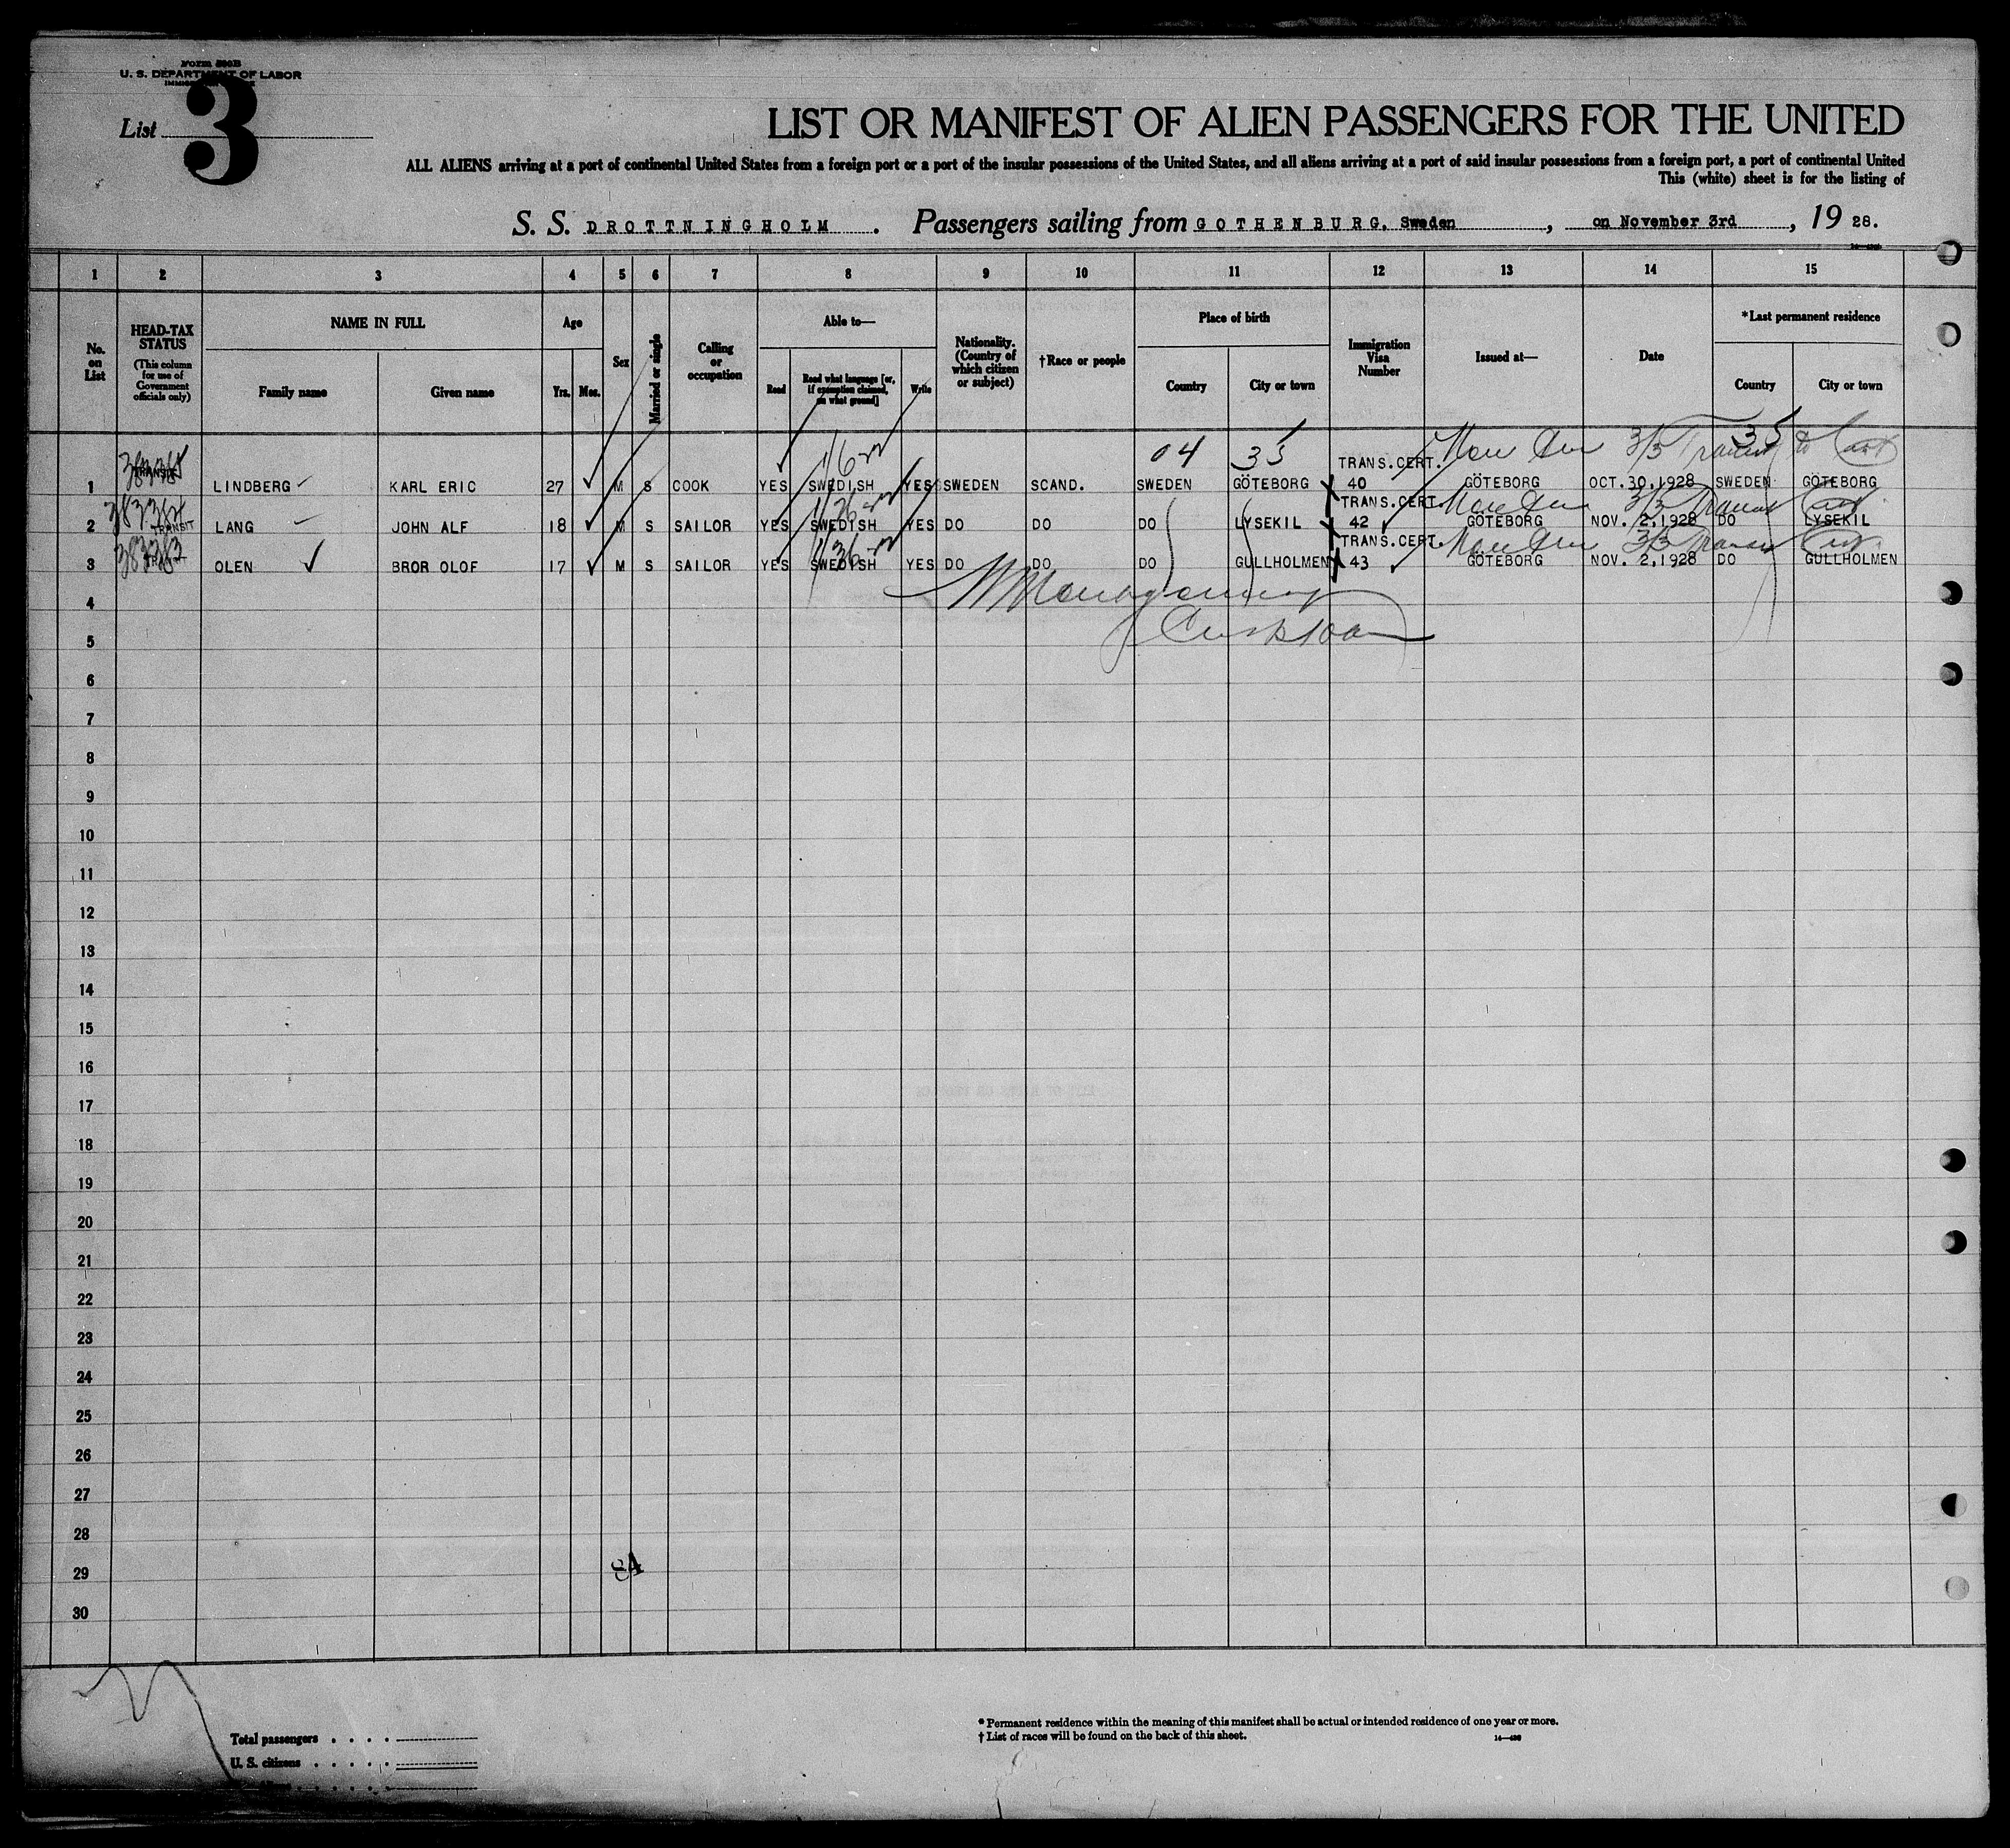 Form 500B
U. S. DEPARTMENT OF LABOR
List 3
LIST OR MANIFEST OF ALIEN PASSENGERS FOR THE UNITED
ALL ALIENS arriving at a port of continental United States from a foreign port or a port of the insular possessions of the United States, and all aliens arriving at a port of said insular possessions from a foreign port, a port of continental United
This (white) sheet is for the listing of
S. S. DROTTNINGHOLM . Passengers sailing from GOTHENBURG, Sweden , on November 3rd , 19 28.
1 2 3 4 5 6 7 8 9 10 11 12 13 14 15
No. on List
HEAD-TAX STATUS
(This column for use of Government officials only)
NAME IN FULL
Family name
Given name
Age
Yrs.
Mos.
Sex
Married or single
Calling or occupation
Able to—
Read
Read what language [or, if exemption claimed, on what ground]
Write
Nationality. (Country of which citizen or subject)
†Race or people
Place of birth
Country
City or town
Immigration Visa Number
Issued at—
Date
*Last permanent residence
Country
City or town
04 35 35
TRANSIT TRANS.CERT.
1 LINDBERG KARL ERIC 27 M S COOK YES SWEDISH YES SWEDEN SCAND. SWEDEN GÖTEBORG 40 GÖTEBORG OCT.30,1928 SWEDEN GÖTEBORG
TRANSIT TRANS.CERT.
2 LANG JOHN ALF 18 M S SAILOR YES SWEDISH YES DO DO DO LYSEKIL 42 GÖTEBORG NOV. 2,1928 DO LYSEKIL
TRANS.CERT.
3 OLEN BROR OLOF 17 M S SAILOR YES SWEDISH YES DO DO DO GULLHOLMEN 43 GÖTEBORG NOV. 2,1928 DO GULLHOLMEN
4
5
6
7
8
9
10
11
12
13
14
15
16
17
18
19
20
21
22
23
24
25
26
27
28
29
30
* Permanent residence within the meaning of this manifest shall be actual or intended residence of one year or more.
† List of races will be found on the back of this sheet.
Total passengers
U. S. citizens